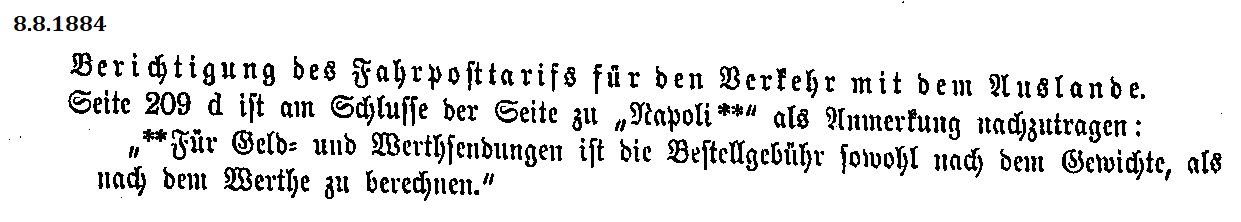 8.8.1884
Berichtigung des Fahrposttarifs für den Verkehr mit dem Auslande.
Seite 209 d ist am Schlusse der Seite zu „Napoli**“ als Anmerkung nachzutragen:
„**Für Geld- und Werthsendungen ist die Bestellgebühr sowohl nach dem Gewichte, als
nach dem Werthe zu berechnen.“